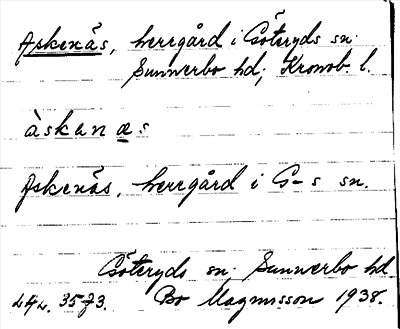 Askenäs, herrgård i Göteryds sn.
Sunnerbo hd; Kronob. l.
àskanæs
Askenäs, herrgård i G-s sn.
Göteryds sn. Sunnerbo hd
Bo Magnusson 1938.